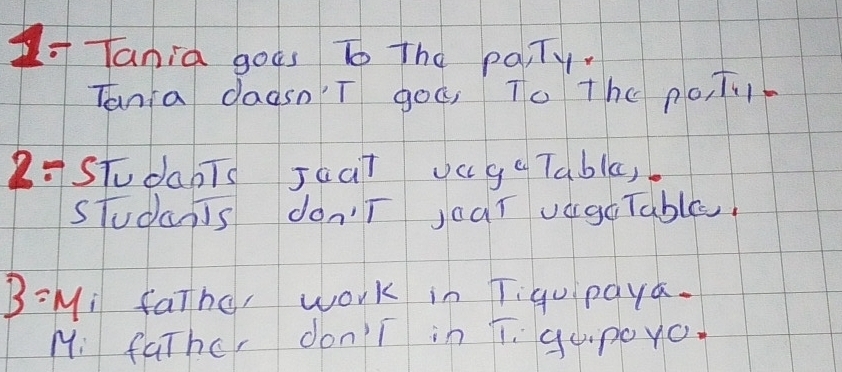 1= Tania goes To The party.
Tania daasn'T goes To The party.
2= STudanTs jaaT vegeTables.
STudanTs don'T jaaT vegeTables.
3= Mi faTher work in Tiquipaya.
Mi faTher don'T in Tiquipaya.